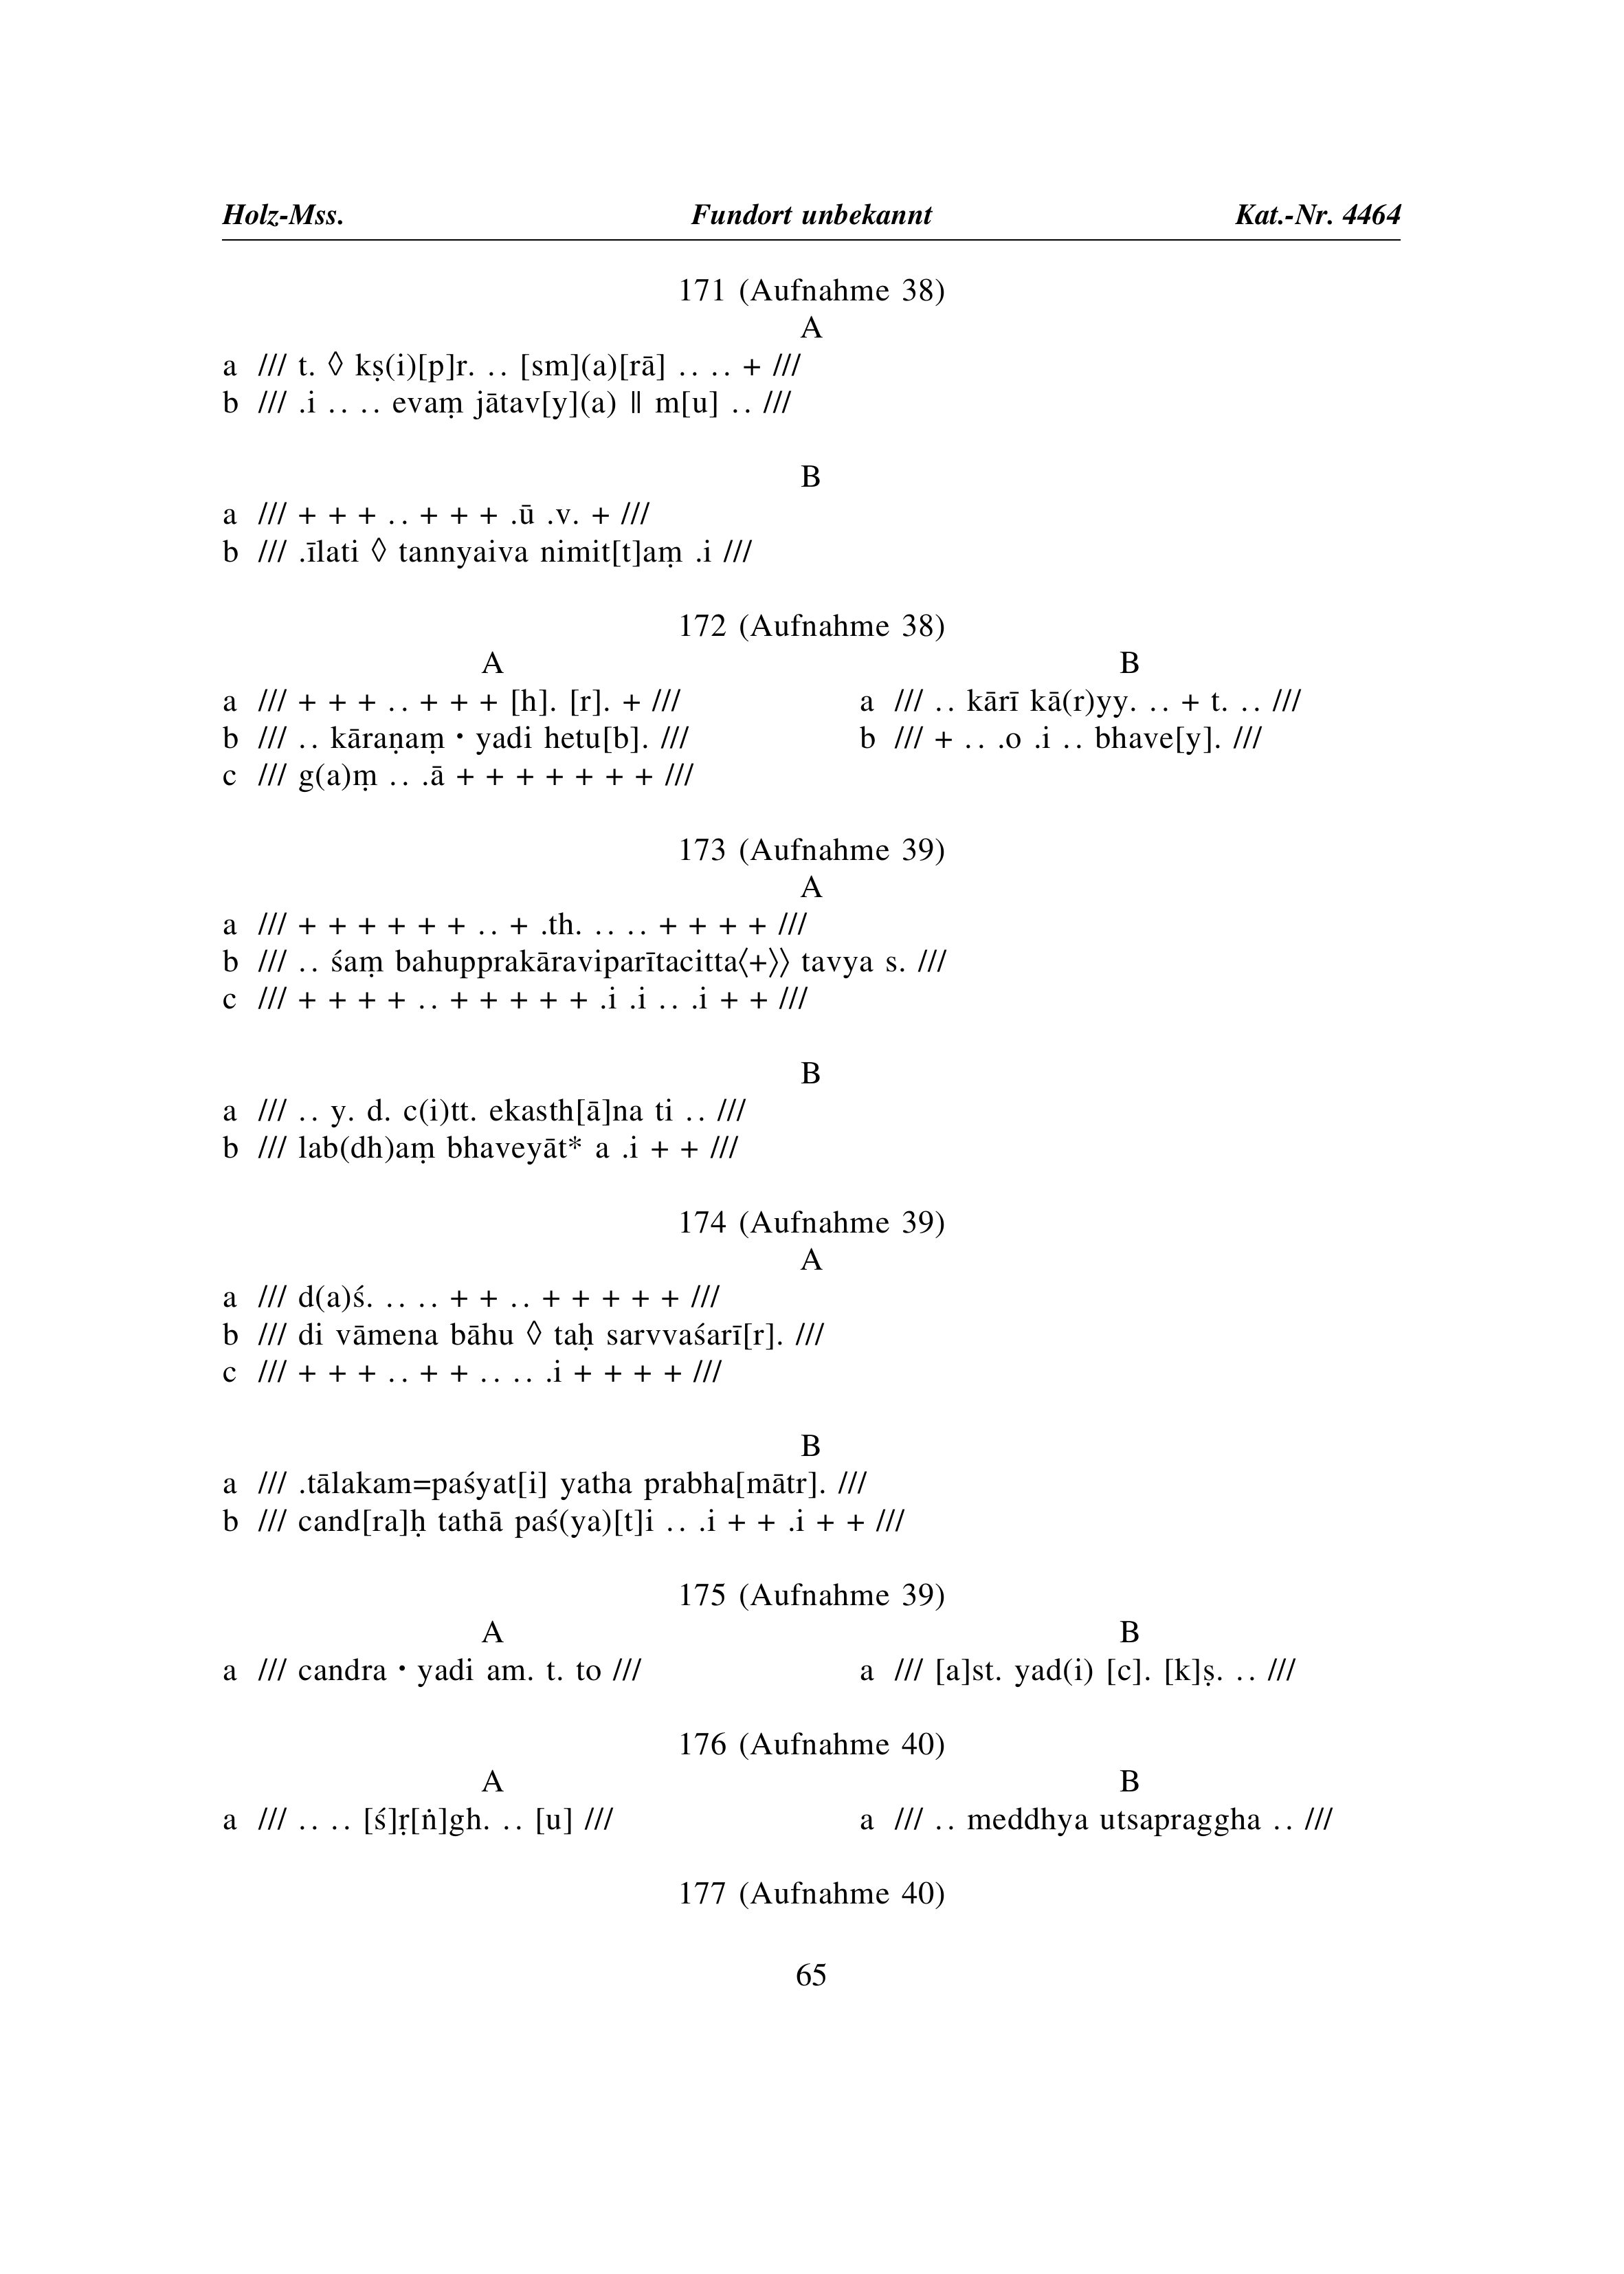 Holz-Mss. Fundort unbekannt Kat.-Nr. 4464
171 (Aufnahme 38)
A
a /// t. ◊ kṣ(i)[p]r. .. [sm](a)[rā] .. .. + ///
b /// .i .. .. evaṃ jātav[y](a) ‖ m[u] .. ///
B
a /// + + + .. + + + .ū .v. + ///
b /// .īlati ◊ tannyaiva nimit[t]aṃ .i ///
172 (Aufnahme 38)
A
a /// + + + .. + + + [h]. [r]. + ///
b /// .. kāraṇaṃ • yadi hetu[b]. ///
c /// g(a)ṃ .. .ā + + + + + + + ///
B
a /// .. kārī kā(r)yy. .. + t. .. ///
b /// + .. .o .i .. bhave[y]. ///
173 (Aufnahme 39)
A
a /// + + + + + + .. + .th. .. .. + + + + ///
b /// .. śaṃ bahupprakāraviparītacitta⟨+⟩⟩ tavya s. ///
c /// + + + + .. + + + + + .i .i .. .i + + ///
B
a /// .. y. d. c(i)tt. ekasth[ā]na ti .. ///
b /// lab(dh)aṃ bhaveyāt* a .i + + ///
174 (Aufnahme 39)
A
a /// d(a)ś. .. .. + + .. + + + + + ///
b /// di vāmena bāhu ◊ taḥ sarvvaśarī[r]. ///
c /// + + + .. + + .. .. .i + + + + ///
B
a /// .tālakam=paśyat[i] yatha prabha[mātr]. ///
b /// cand[ra]ḥ tathā paś(ya)[t]i .. .i + + .i + + ///
175 (Aufnahme 39)
A
a /// candra • yadi am. t. to ///
B
a /// [a]st. yad(i) [c]. [k]ṣ. .. ///
176 (Aufnahme 40)
A
a /// .. .. [ś]ṛ[ṅ]gh. .. [u] ///
B
a /// .. meddhya utsapraggha .. ///
177 (Aufnahme 40)
65